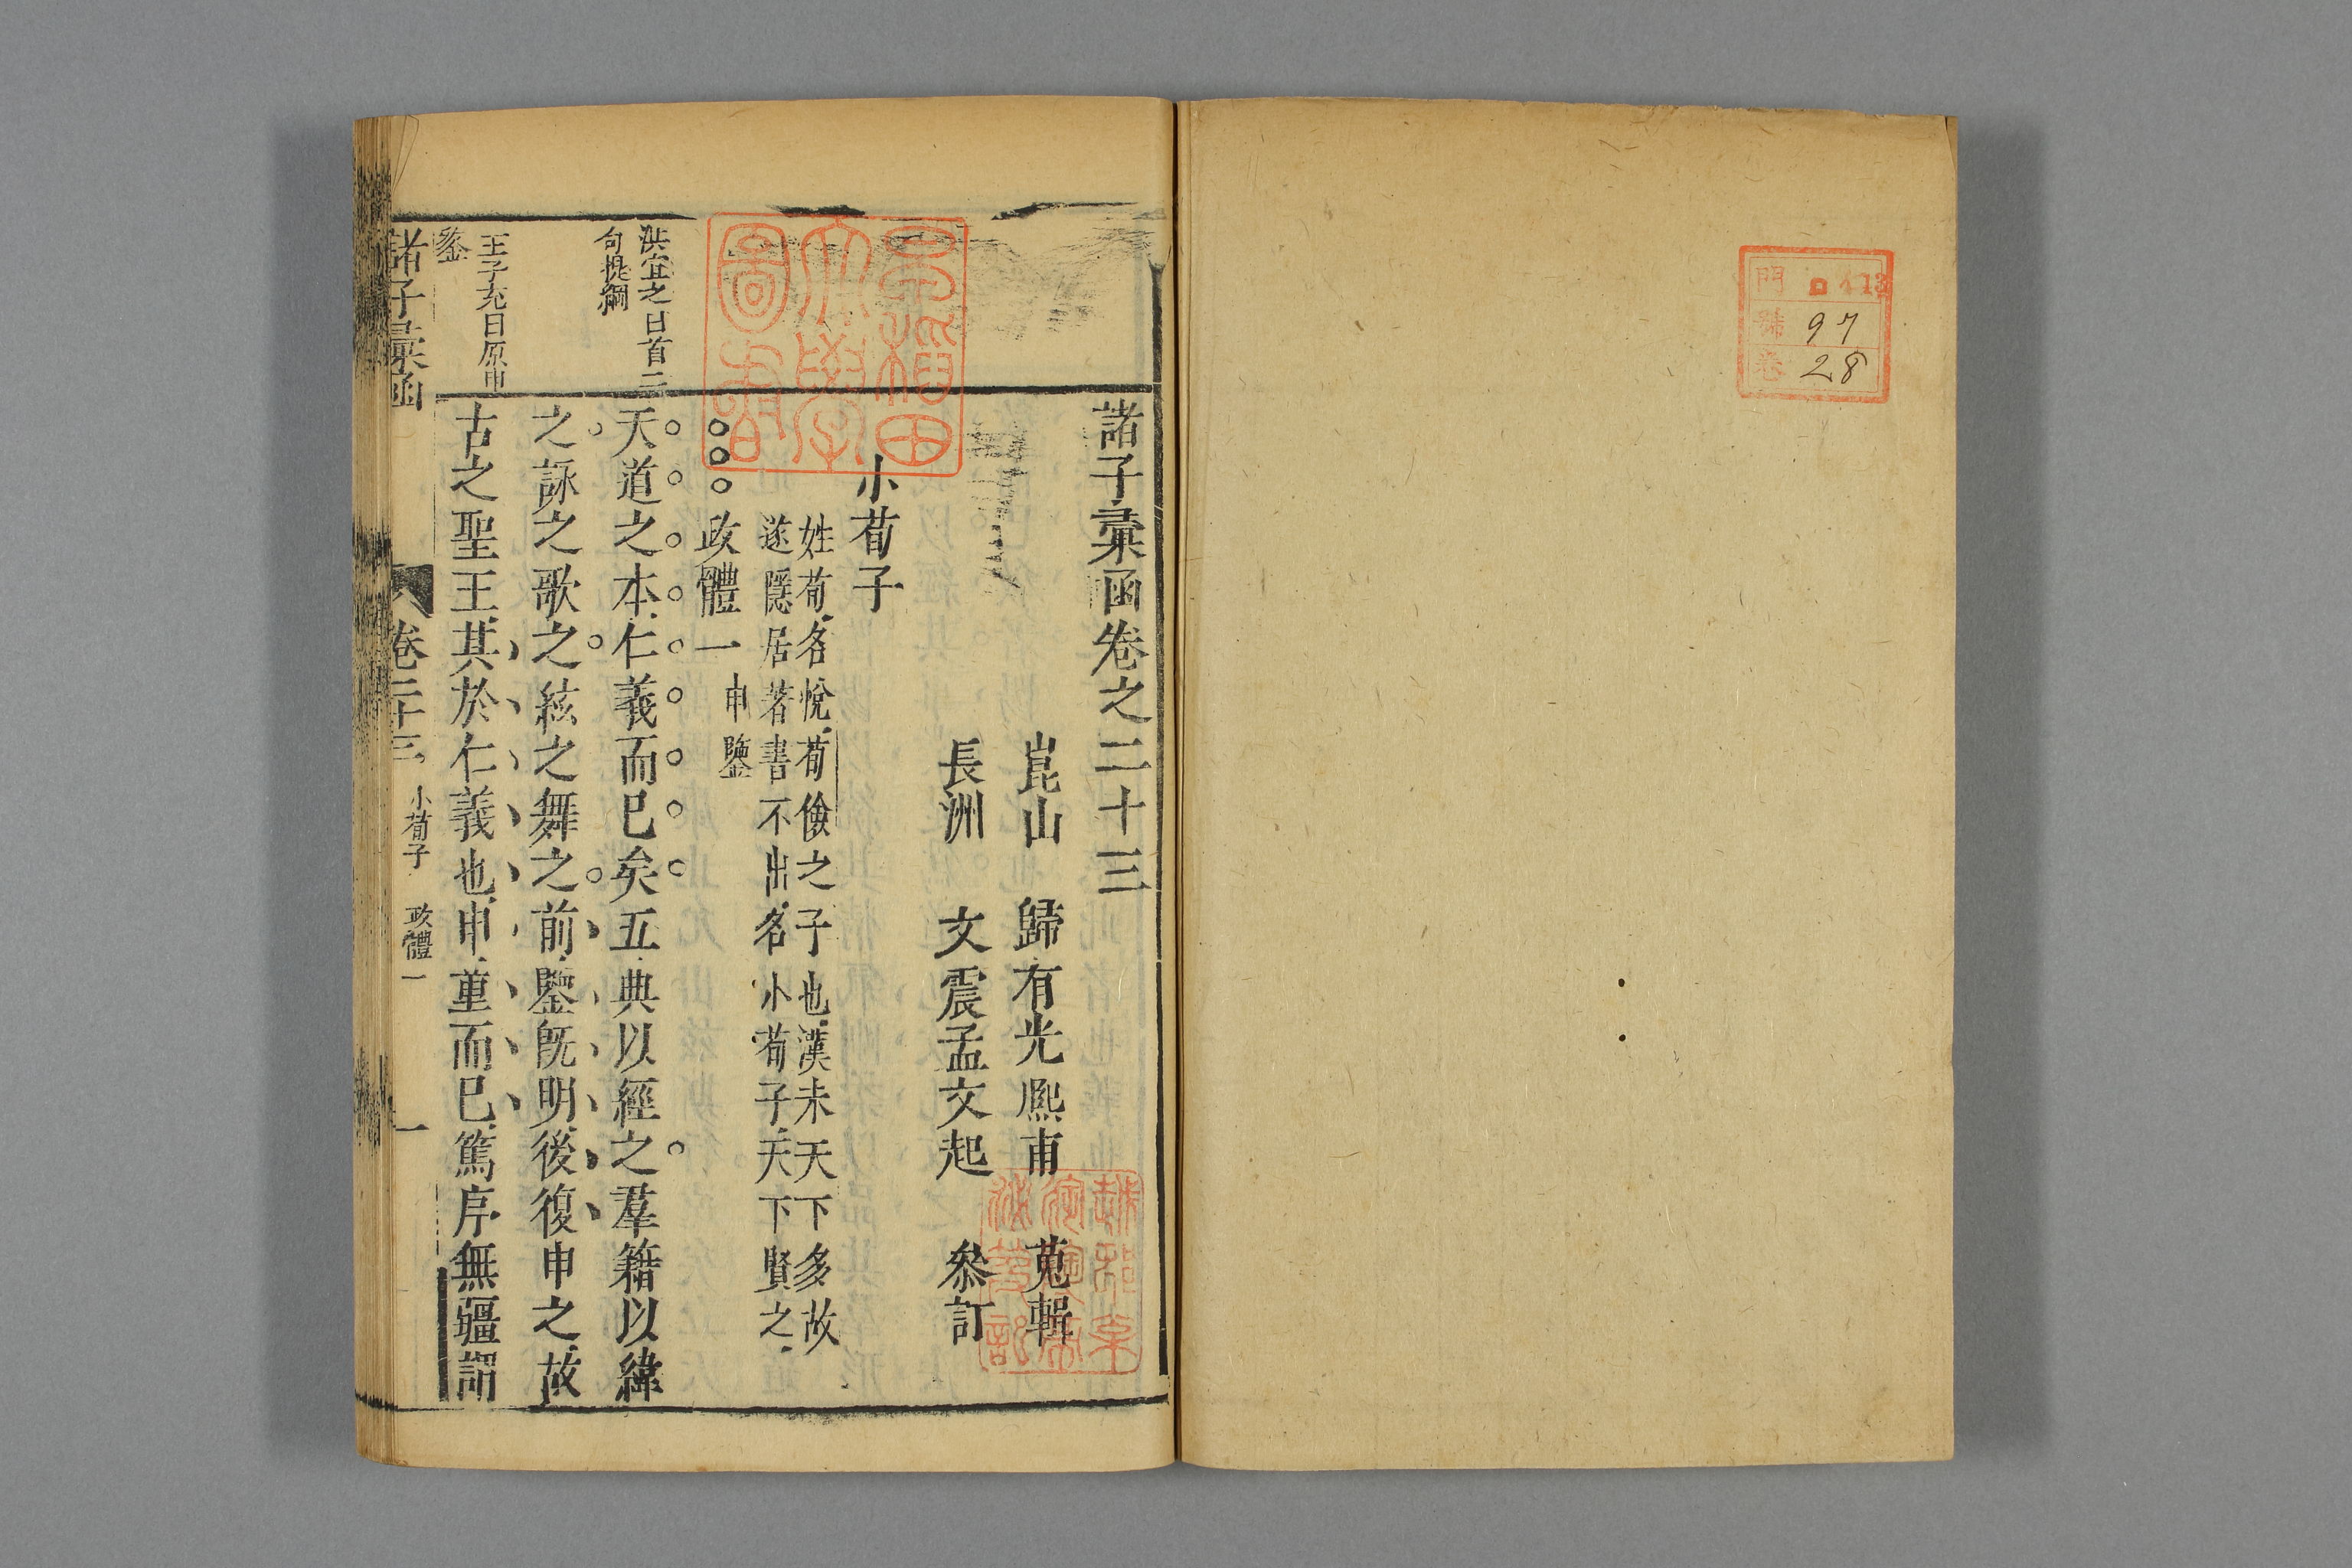 門 ロ 13
號 97
卷 28
諸子彙函卷之二十三
崑山 歸有光熙甫 蒐輯
長洲 文震孟文起 叅訂
小荀子
姓荀名悅荀儉之子也漢末天下多故
遂隱居著書不出名小荀子天下賢之
政體一 申鑒
天道之本仁義而已矣五典以經之羣籍以緯
之詠之歌之絃之舞之前鑒旣明後復申之故
古之聖王其於仁義也申重而已篤序無疆謂
洪宜之曰首二
句提綱
王子充曰原申
鑒
諸子彙函 卷二十三 小荀子 政體一 一
早稻田大學圖書